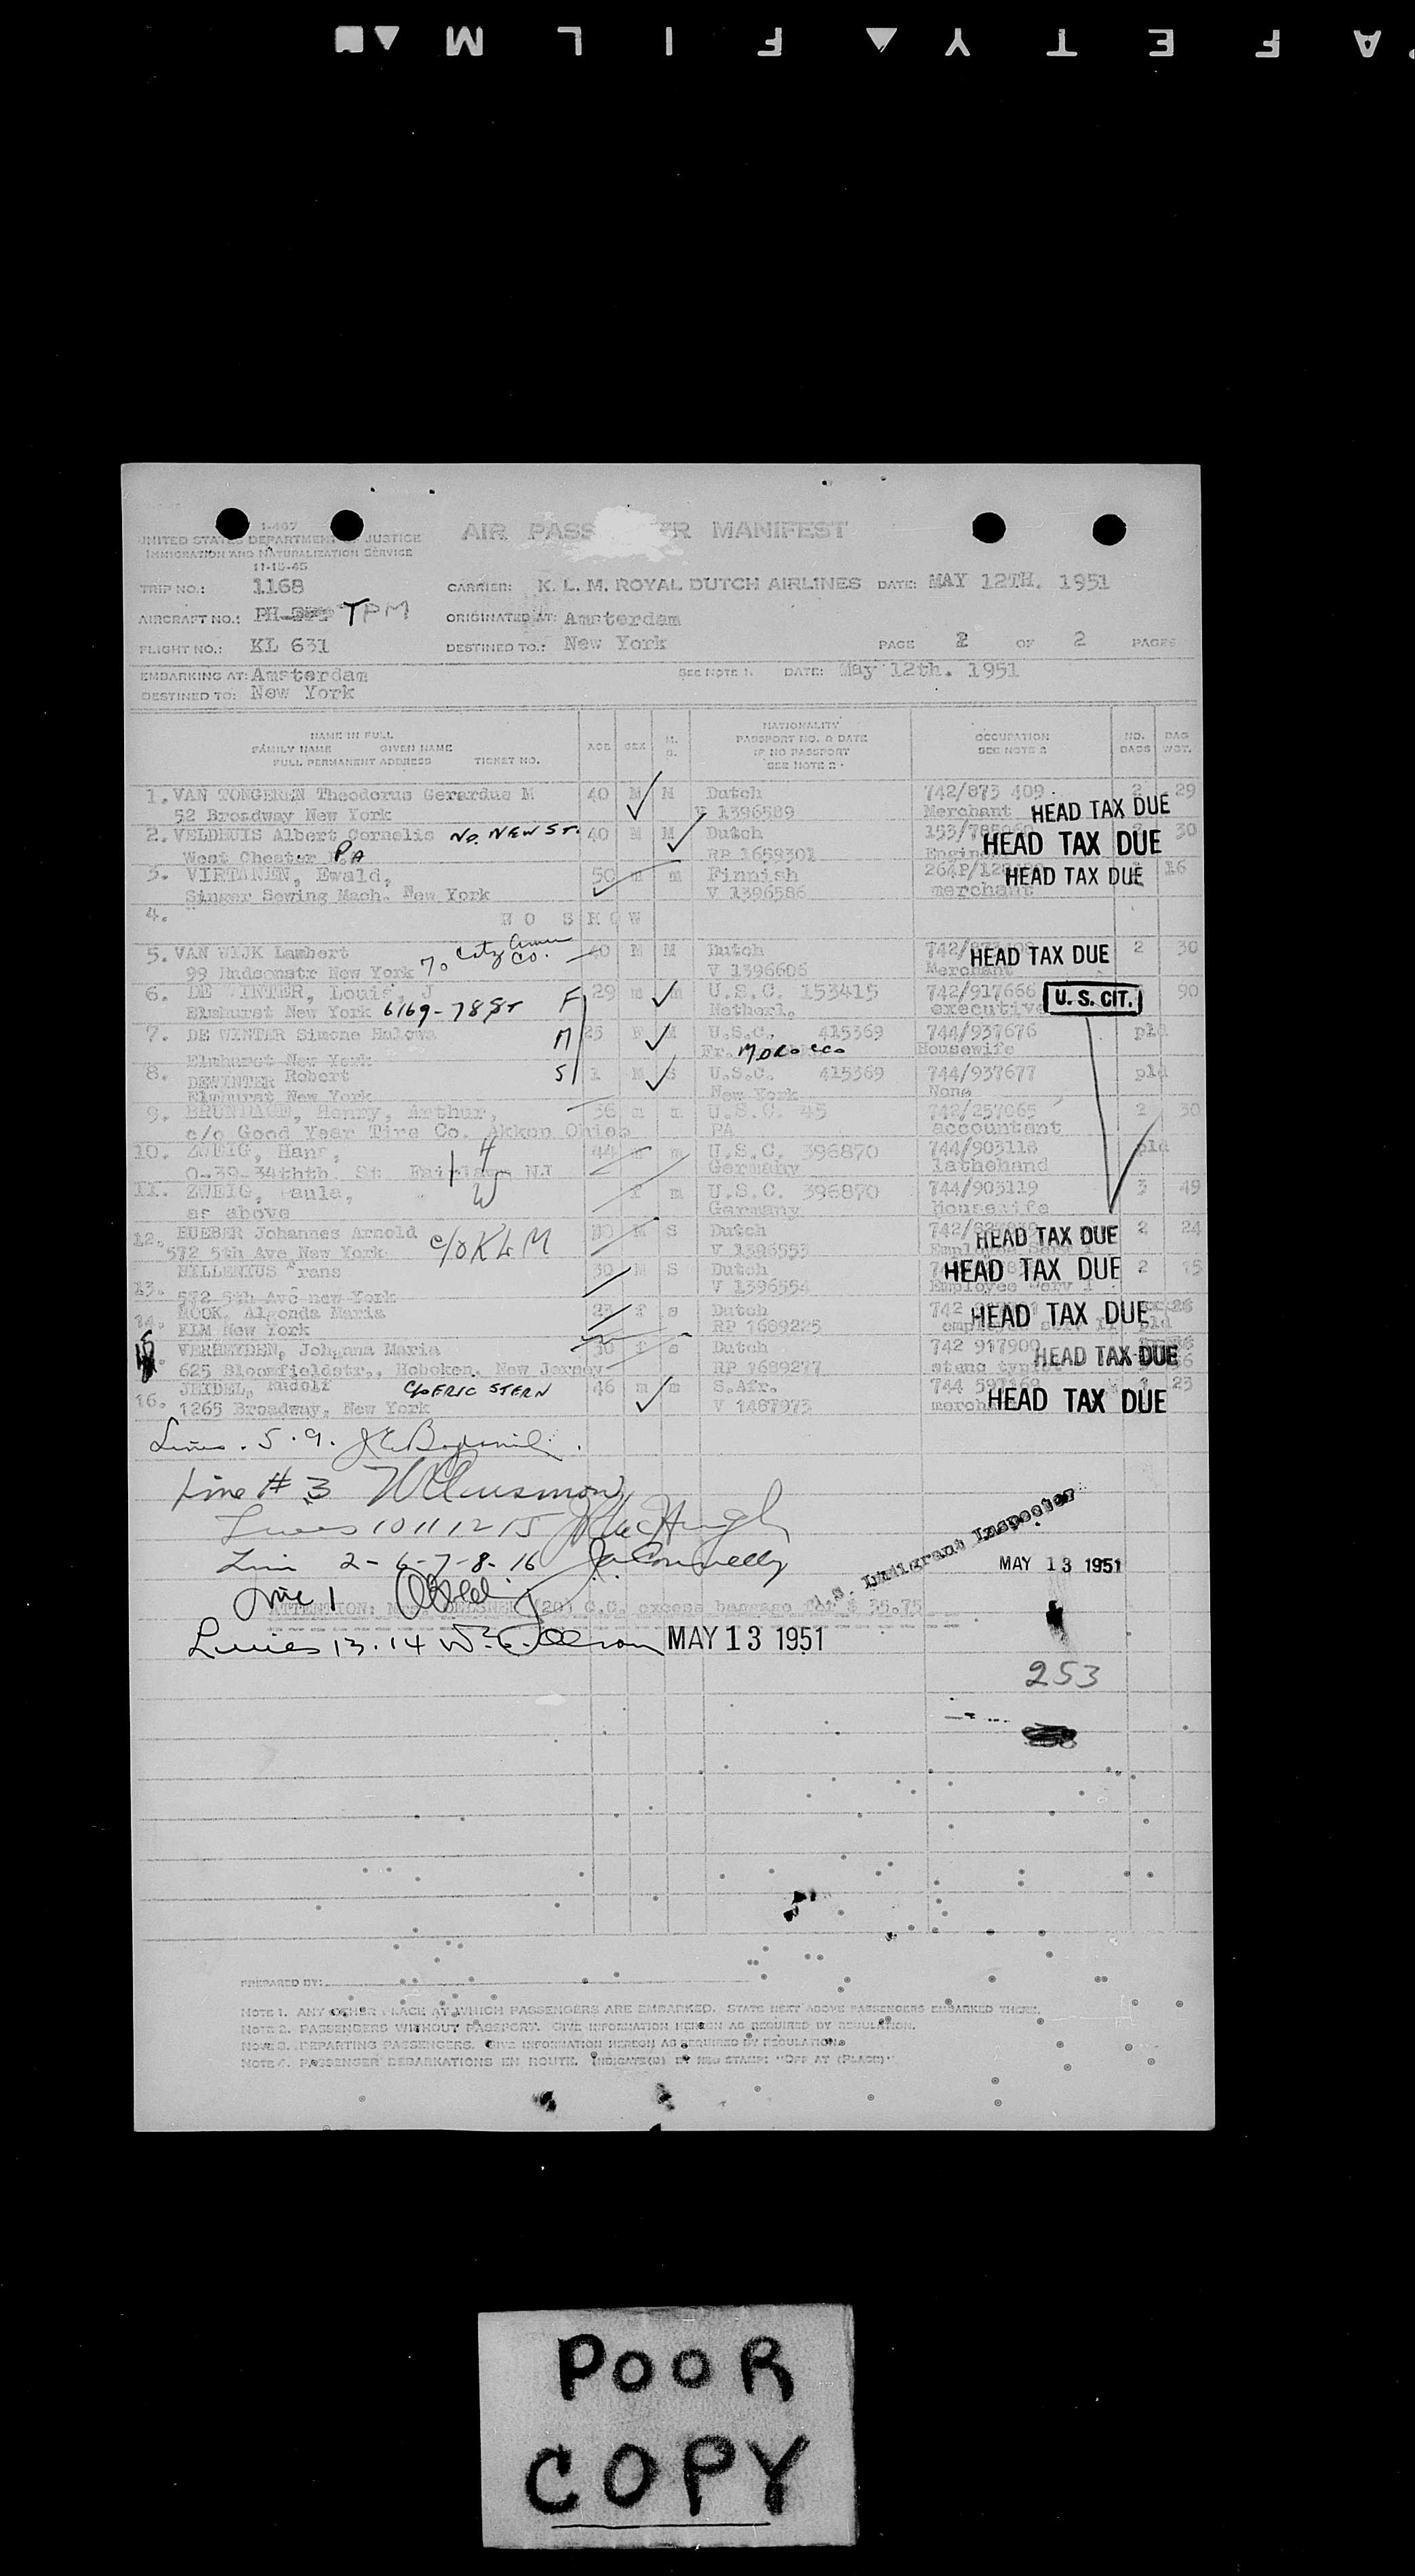 SAFETY FILM
I-467
UNITED STATES DEPARTMENT JUSTICE
IMMIGRATION AND NATURALIZATION SERVICE
11-15-45
AIR PASS ER MANIFEST
TRIP NO.: 1168 CARRIER: K. L. M. ROYAL DUTCH AIRLINES DATE: MAY 12TH. 1951
AIRCRAFT NO.: PH- TPM ORIGINATED AT: Amsterdam
FLIGHT NO.: KL 631 DESTINED TO.: New York PAGE 2 OF 2 PAGES
EMBARKING AT: Amsterdam SEE NOTE 1. DATE: May 12th. 1951
DESTINED TO: New York
NAME IN FULL
FAMILY NAME GIVEN NAME
FULL PERMANENT ADDRESS TICKET NO.
AGE SEX M. S.
NATIONALITY
PASSPORT NO. & DATE
IF NO PASSPORT
SEE NOTE 2
OCCUPATION
SEE NOTE 2
NO. BAGS
BAG WGT.
1. VAN TONGEREN Theodorus Gerardus M 40 M M Dutch 742/873 409 2 29
52 Broadway New York V 1396589 Merchant HEAD TAX DUE
2. VELDHUIS Albert Cornelis NO. NEW ST. 40 M M Dutch 30
West Chester PA RP 1659301 HEAD TAX DUE
3. VIRTANEN, Ewald, 50 m m Finnish HEAD TAX DUE 16
Singer Sewing Mach. New York V 1396586 merchant
4. NO SHOW
5. VAN WIJK Lambert 40 M M Dutch HEAD TAX DUE 2 30
99 Hudsonstr New York V 1396606 Merchant
6. DE WINTER, Louis, J F 29 m m U.S.C. 153415 742/917666 U. S. CIT. 90
Elmhurst New York 6169-78 ST Netherl. executive
7. DE WINTER Simone M 25 F M U.S.C. 415369 744/937676 pld
Elmhurst New York Fr. MOROCCO Housewife
8. DEWINTER Robert S 1 M S U.S.C. 415369 744/937677 pld
Elmhurst New York New York None
9. BRUNDAGE, Henry, Arthur, 36 m m U.S.C. 45 742/257065 2 30
c/o Good Year Tire Co. Akkon Ohieo PA accountant
10. ZWEIG, Hans, H 44 m m U.S.C. 396870 744/903118 pld
0-39-34thth. St Fairlawn NJ Germany lathehand
11. ZWEIG, Paula, W f m U.S.C. 396870 744/903119 3 49
as above Germany Housewife
12. HUEBER Johannes Arnold 30 M S Dutch HEAD TAX DUE 2 24
572 5th Ave New York c/o KLM V 1396553
13. HILLENIUS Frans 30 M S Dutch HEAD TAX DUE 2 15
572 5th Ave new York V 1396554 Employee serv
14. MOOK, Algonda Maria 23 f s Dutch 742 HEAD TAX DUE 26
KLM New York RP 1689225 pld
15. VERHEYDEN, Johanna Maria 30 f s Dutch 742 917900 HEAD TAX DUE
625 Bloomfieldstr., Hoboken, New Jersey RP 1689277 steno typist
16. JEIDEL, Rudolf C/O ERIC STERN 46 m m S.Afr. 744 597169 23
1265 Broadway, New York V 1487973 HEAD TAX DUE
Lines . 5 . 9.
Line # 3
Lines 10 11 12 15
U.S. Immigrant Inspector
Line 2-6-7-8-16 J. Connelly MAY 13 1951
Line 1
ATTENTION: (20) C.C. excess baggage for $ 35.75
Lines 13.14 MAY 13 1951
253
PREPARED BY:
NOTE 1. ANY OTHER PLACE AT WHICH PASSENGERS ARE EMBARKED. STATE NEXT ABOVE PASSENGERS EMBARKED THERE.
NOTE 2. PASSENGERS WITHOUT PASSPORT. GIVE INFORMATION HEREON AS REQUIRED BY REGULATION.
NOTE 3. DEPARTING PASSENGERS. GIVE INFORMATION HEREON AS REQUIRED BY REGULATION.
NOTE 4. PASSENGER DEBARKATIONS EN ROUTE. INDICATE(D) BY RED STAMP: "OFF AT (PLACE)"
POOR
COPY